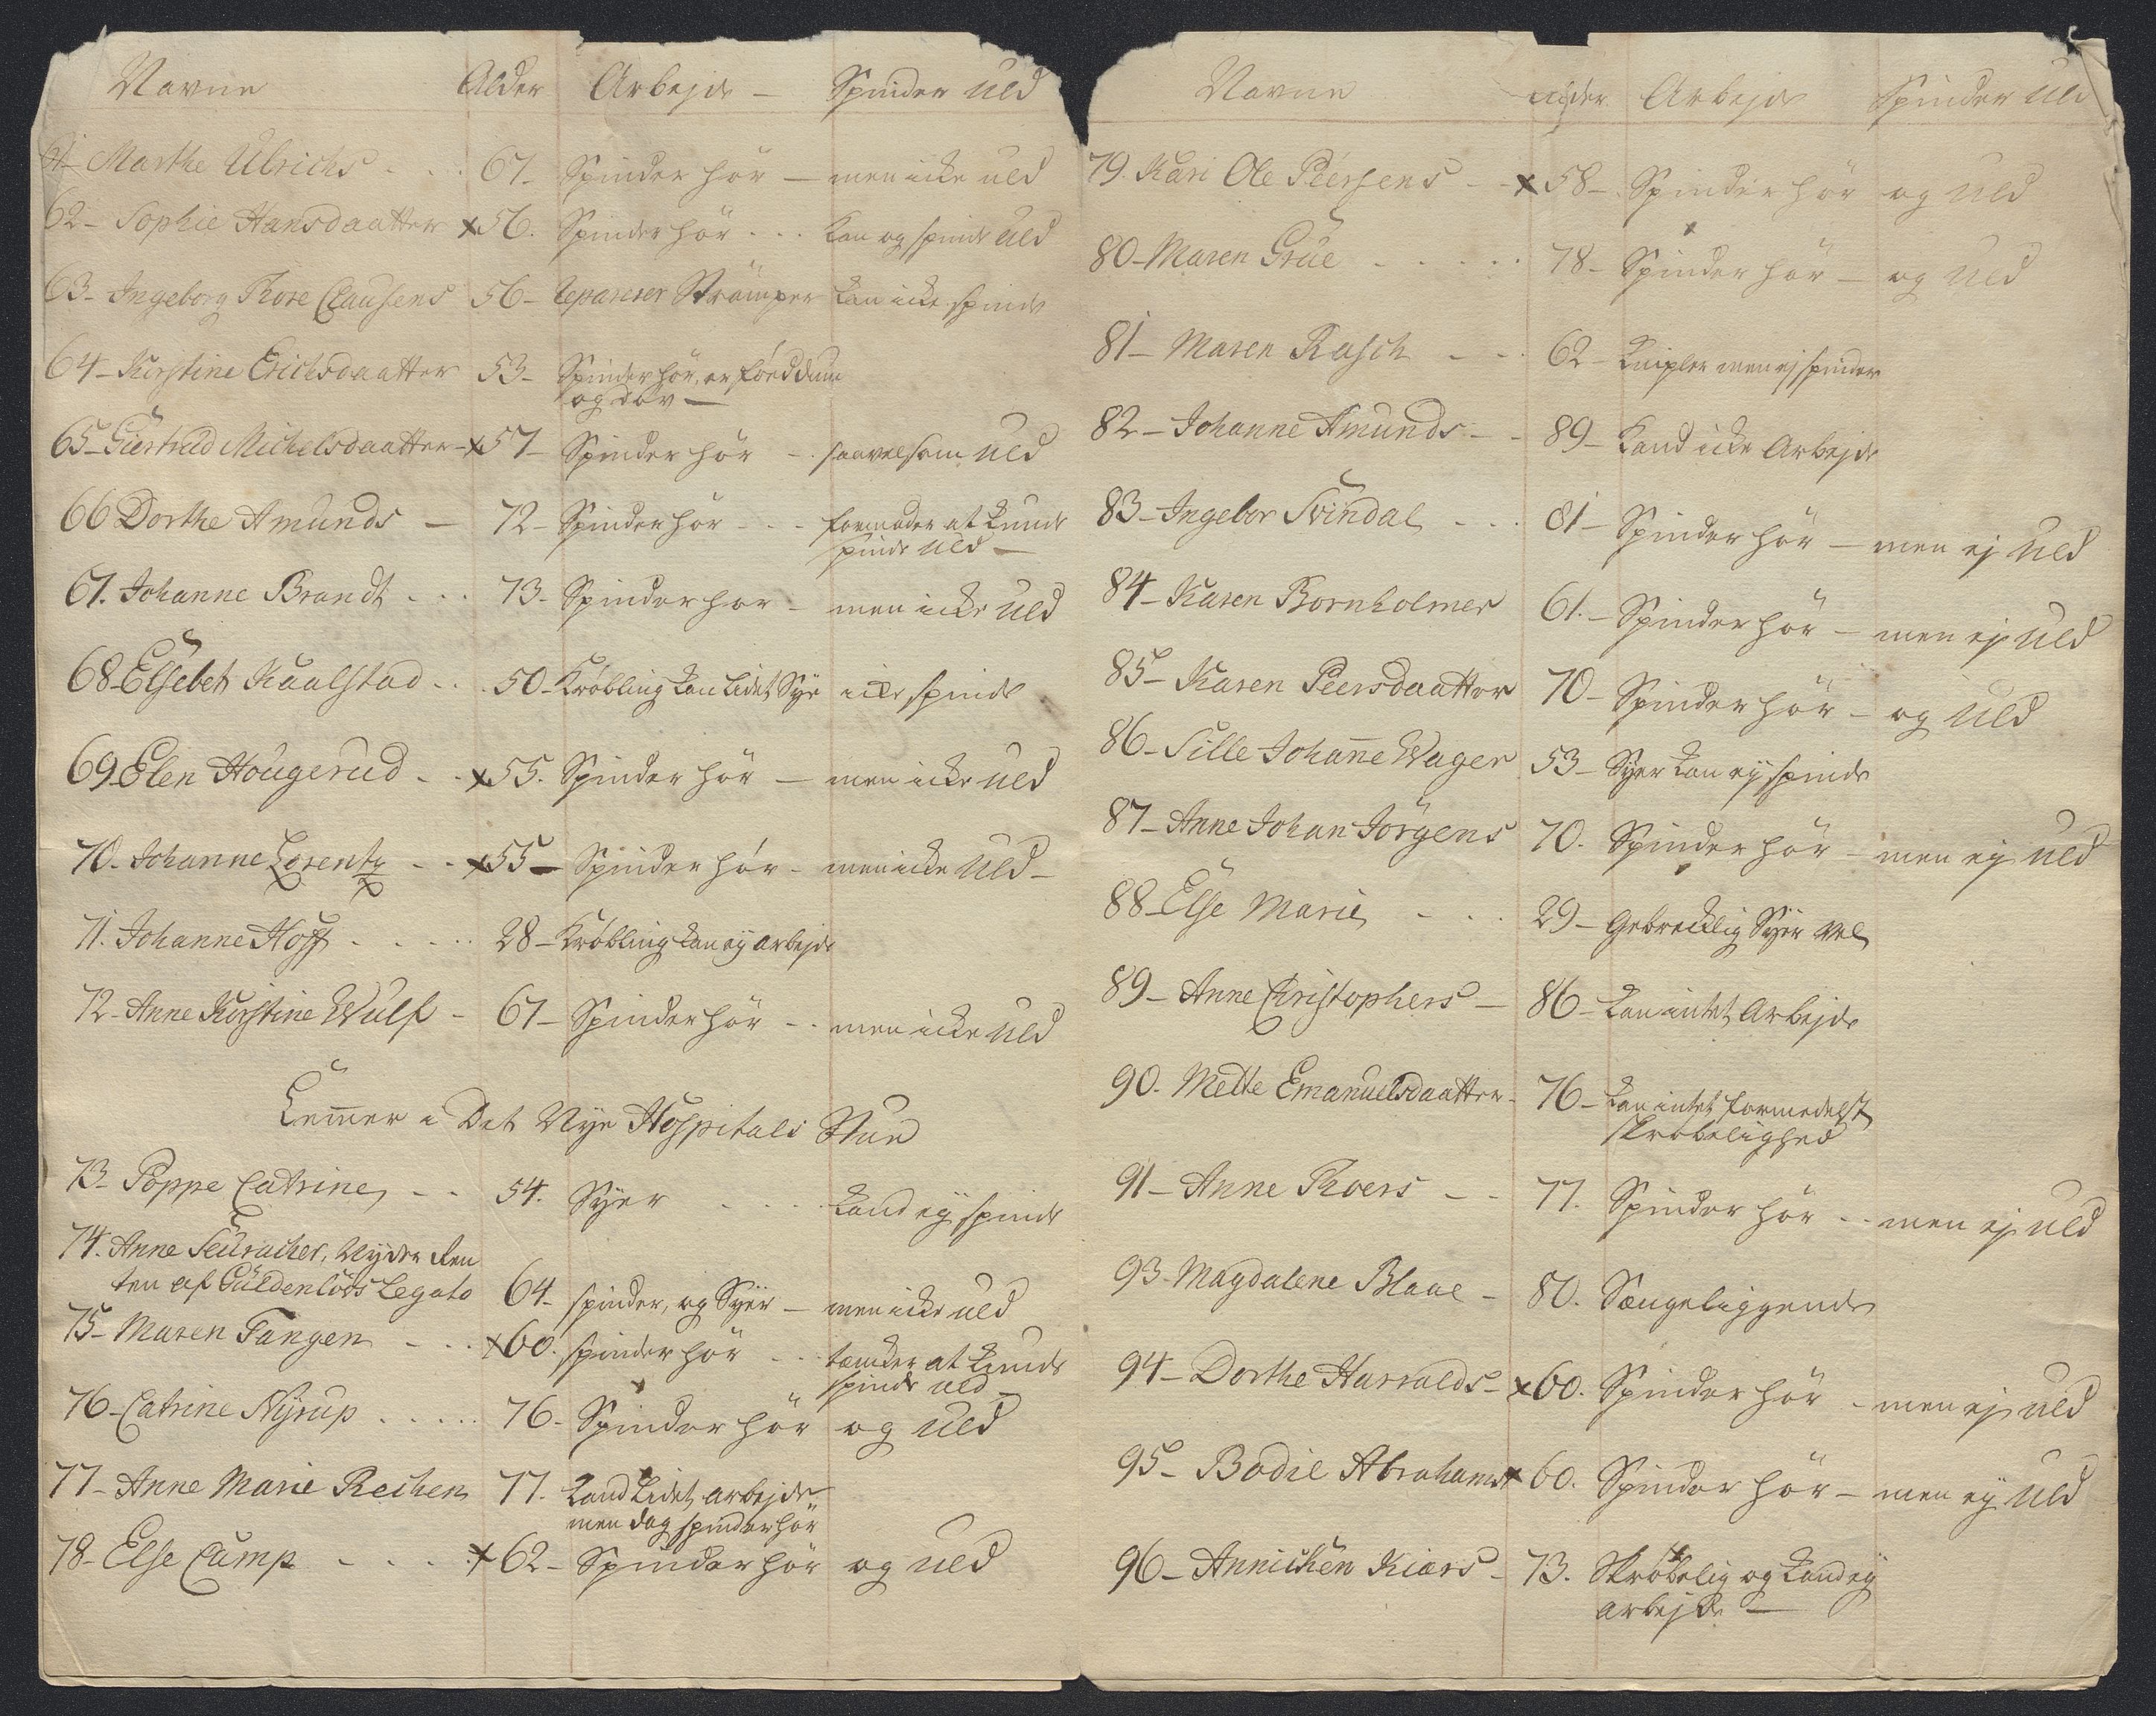 Navne Alder Arbejde - Spinder Uld
61- Marthe Ulrichs - . . 67- Spinder hör - men icke uld
62- Sophie Hansdaatter x 56. Spinder hör . . . kan og spinde Uld
63- Ingeborg Thore Clausens 56- reparerer Strömper kan icke spinde
64- Kirstine Erichsdaatter 53- Spinder hör, er föed dum
og döv -
65- Giertrud Michelsdaatter - x 57- Spinder hör - . saavelsom Uld
66 Dorthe Amunds - 72- Spinder hör - - - formoder at kunde
spinde Uld -
67. Johanne Brandt . . . 73- Spinder hör - men icke Uld
68- Elsebet Kaalstad . . . 50- Kröbling kan lidet Sye icke spinde
69 Elen Hougerud - - x 55. Spinder hör - men icke Uld
70- Johanne Lorentz - - x 55- Spinder hör - men icke Uld -
71. Johanne Hoff . . . . . 28- Kröbling kan ey arbejde
72- Anne Kirstine Wulf - 67- Spinder hör - . men icke Uld
Lemmer i Det Nye Hospitals Stue
73- Poppe Catrine, - - 54. Syer . . . . kand ey spinde
74. Anne Seuracher, Nyder Ren
ten af Güldenlövs Legato 64- spinder, og Syer - men icke Uld
75- Maren Fangen - . . x 60. spinder hör . . tæncker at kunde
spinde uld
76- Catrine Nyrup . . . . . 76- Spinder hör og Uld
77- Anne Marie Rechen 77. kand lidet arbejde
men dog spinder hör
78- Else Camp - . . . x 62- Spinder hör og Uld
Navne Alder Arbejde Spinder Uld
79. Kari Ole Peersens - - x 58- Spinder hör og Uld
80- Maren Grüe - . . . . 78- Spinder hör - og Uld
81- Maren Rasch - - . 62- Knipler men ej spinder
82- Johanne Amunds - - 89- kand icke Arbejde
83- Ingebor Svindal - - . 81- Spinder hör - men ej Uld
84- Karen Bornholmer 61.- Spinder hör - men ej Uld
85- Karen Peersdaatter 70- Spinder hör - og Uld
86- Sille Johan̄e Wager 53- Syer kan ey spinde
87- Anne Johan Jörgens 70. Spinder hör - men ey Uld
88- Else Marie - . . . 29- Gebrecklig Syer vel
89- Anne Christophers - 86- kan intet Arbejde
90. Mette Emanuelsdaatter - 76- kan intet formedelst
skröbelighed
91- Anne Thoers - - 77. Spinder hör . - men ej Uld
93- Magdalene Blaae - 80. Sængeliggende
94- Dorthe Harralds - x 60. Spinder hör - men ej Uld
95- Bodil Abrahams x 60. Spinder hör - men ey Uld
96- Annichen Kiærs - 73. Skröbelig og kand ey
arbejde -